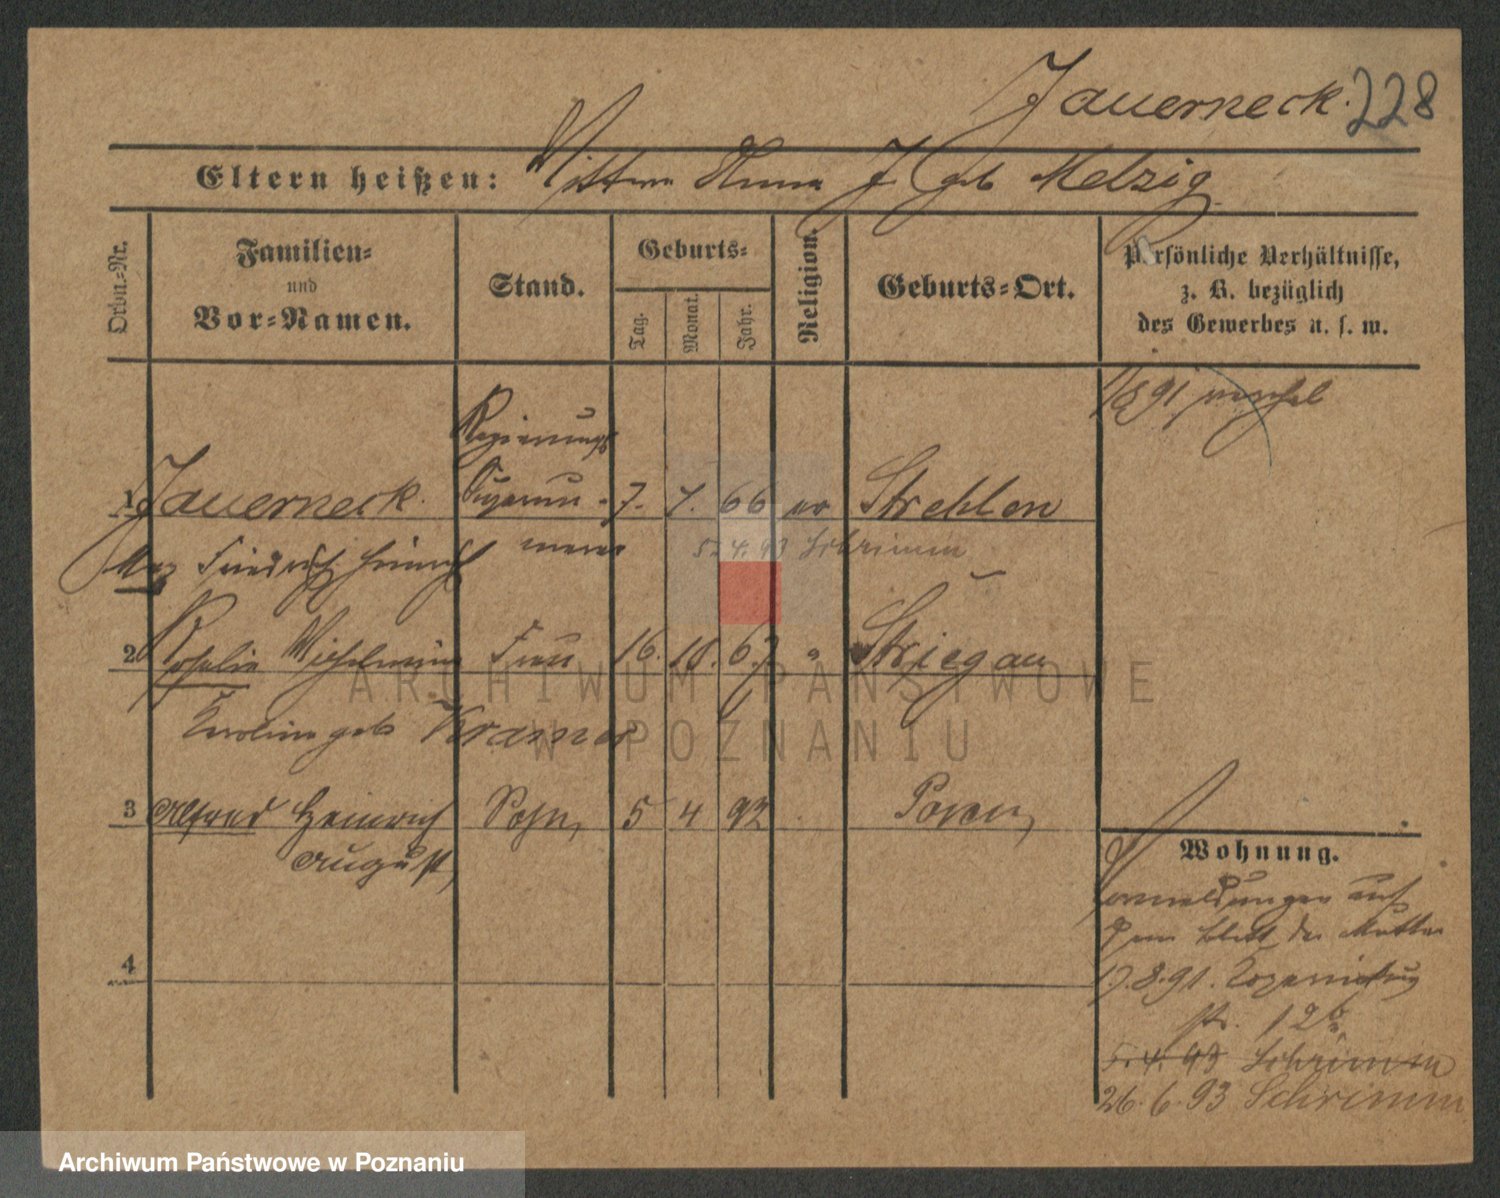 Jauerneck. 228
Eltern heißen: Mutter Anna J. geb Melzig
Ordn.-Nr.
Familien-
und
Vor-Namen.
Stand.
Geburts-
Tag.
Monat.
Jahr.
Religion.
Geburts-Ort.
Persönliche Verhältnisse,
z. B. bezüglich
des Gewerbes u. s. w.
91
Regierungs
1 Jauerneck. 7. 7. 66 ev Strehlen
Max Friedrich Heinrich
5. 4. 93 Schrimm
2 Rosalie Wilhelmine Frau 16. 10. 67 " Striegau
Karoline geb Kramer
3 Alfred Heinrich Sohn, 5 4 92 Posen,
August,
4
Wohnung.
Vormeldungen auf
dem Blatt der Mutter
17.8.91.
str. 12b.
5. 4. 93 Schrimm
26. 6. 93 Schrimm
ARCHIWUM PAŃSTWOWE
W POZNANIU
Archiwum Państwowe w Poznaniu